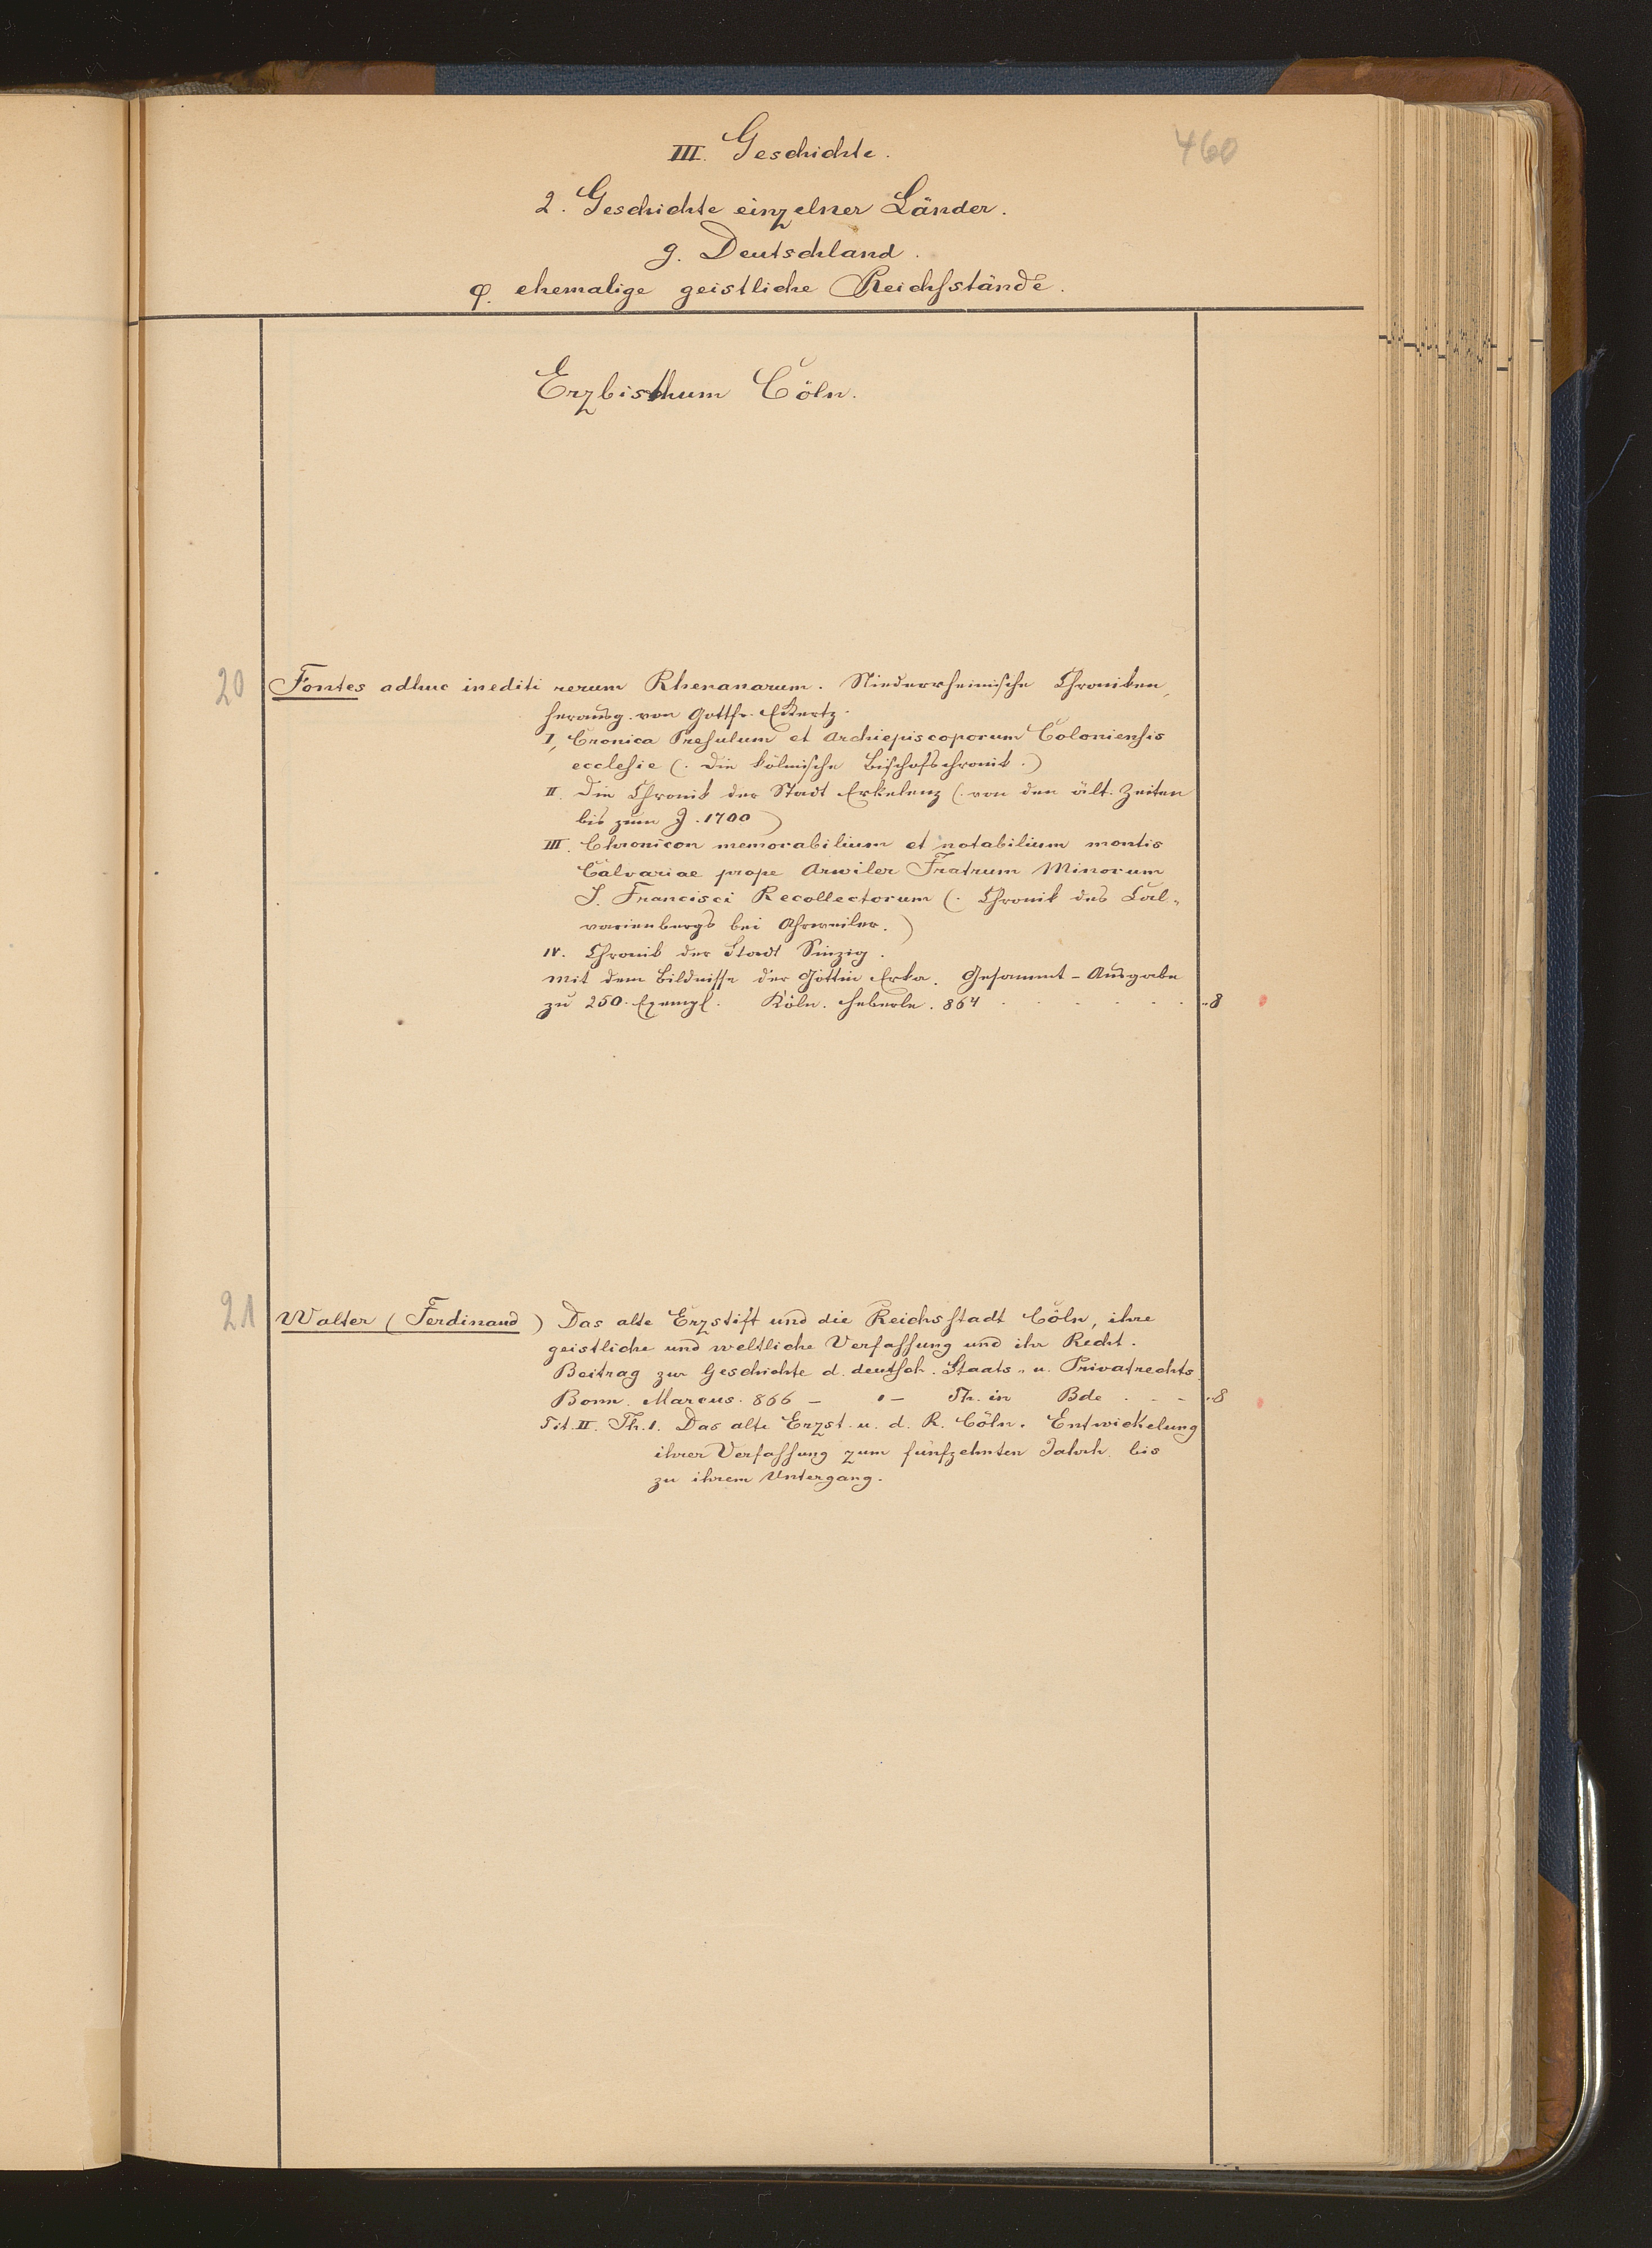 460
III. Geschichte.
2. Geschichte einzelner Länder.
g. Deutschland.
φ. ehemalige geistliche Reichsstände.
Erzbisthum Cöln.
20 Fontes adhuc inediti rerum Rhenanarum. Niederrheinische Chroniken,
herausg. von Gottfr. Eckertz.
I, Cronica Presulum et Archiepiscoporum Coloniensis
ecclesie (: Die kölnische Bischofschronik.)
II. Die Chronik der Stadt Erkelenz (: von den ält. Zeiten
bis zum J. 1700)
III. Chronicon memorabilium et notabilium montis
Calvariae prope Arwiler Fratrum Minorum
S. Francisci Recollectorum (: Chronik des Cal-
varienbergs bei Ahrweiler.)
IV. Chronik der Stadt Sinzig.
Mit dem Bildnisse der Göttin Erka. Gesammt-Ausgabe
zu 250. Exempl. Köln. Heberle. 864 . . . . . . 8
21 Walter (Ferdinand) Das alte Erzstift und die Reichsstadt Cöln, ihre
geistliche und weltliche Verfassung und ihr Recht.
Beitrag zur Geschichte d. deutsch. Staats- u. Privatrechts.
Bonn. Marcus. 866 – 1 – Th. in Bde . - - 8
Tit. II. Th. 1. Das alte Erzst. u. d. R. Cöln. Entwickelung
ihrer Verfassung zum fünfzehnten Jahrh. bis
zu ihrem Untergang.